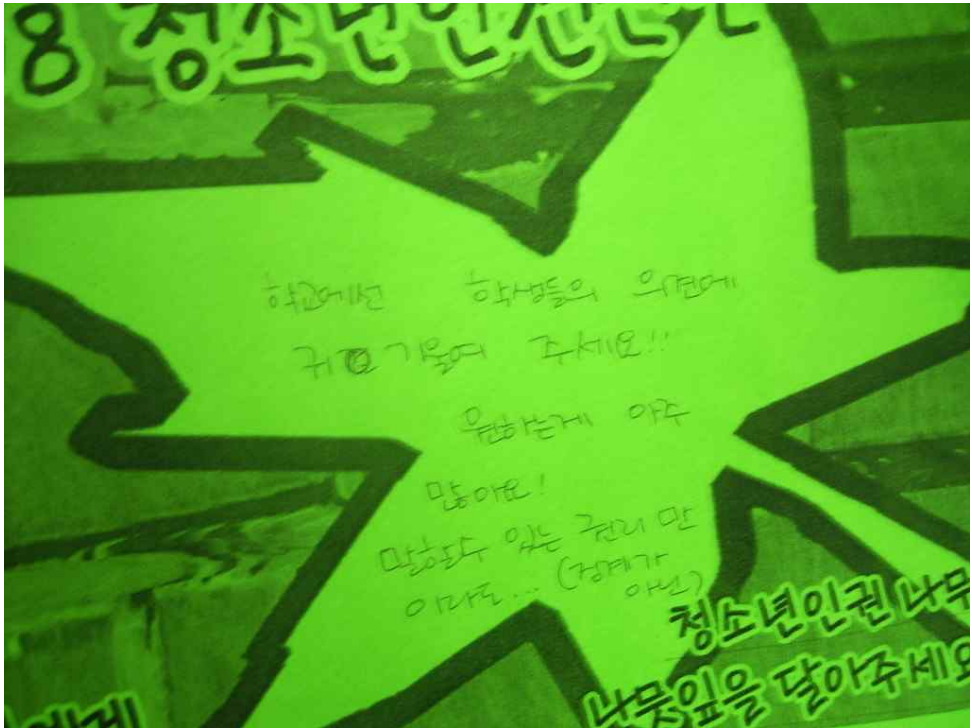 8 청소년인권선언
학교에선 학생들의 의견에
귀 기울여 주세요!!
원하는게 아주
많아요!
말할수 있는 권리 만
이라도... (징계가
아닌)
청소년인권 나무
나뭇잎을 달아주세요
에게